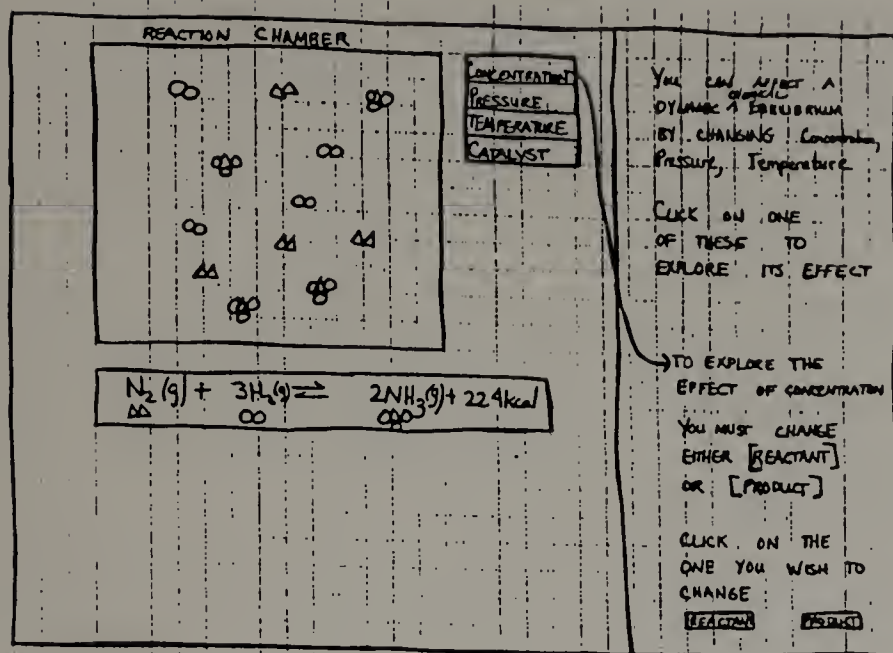 REACTION CHAMBER
CONCENTRATION
PRESSURE
TEMPERATURE
CATALYST
N₂(g) + 3H₂(g) ⇌ 2NH₃(g) + 22.4 kcal
YOU CAN AFFECT A
DYNAMIC ^ EQUILIBRIUM
BY CHANGING Concentration,
Pressure, Temperature
CLICK ON ONE
OF THESE TO
EXPLORE ITS EFFECT
TO EXPLORE THE
EFFECT OF CONCENTRATION
YOU MUST CHANGE
EITHER [REACTANT]
OR [PRODUCT]
CLICK ON THE
ONE YOU WISH TO
CHANGE
REACTANT PRODUCT